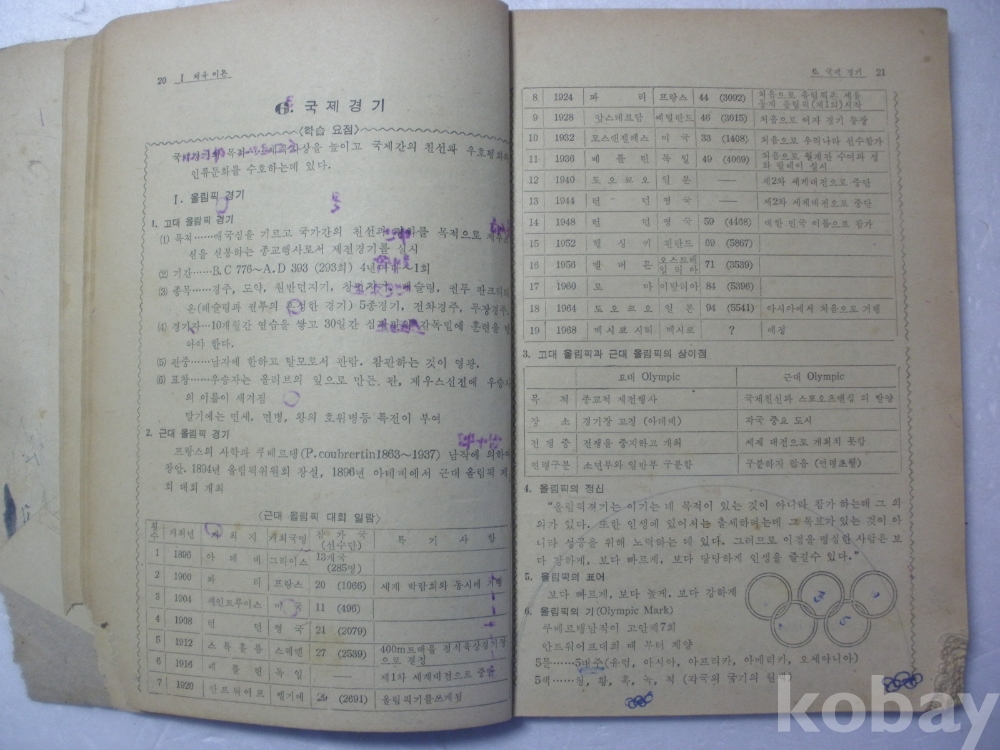 20 Ⅰ 체육 이론
6. 국제경기
〈학습 요점〉
상을 높이고 국제간의 친선과 우호
인류문화를 수호하는데 있다.
Ⅰ. 올림픽 경기
1. 고대 올림픽 경기
(1) 목적……애국심을 기르고 국가간의 친선과 목적으로
신을 선봉하는 종교행사로서 제전경기를 실시
(2) 기간……B.C 776～A.D 393 (293회) 4년 1회
(3) 종목……경주, 도약, 원반던지기, 레슬링, 권투
온(레슬링과 권투의 경기) 5종경기, 전차경주, 무장경주
(4) 10개월간 연습을 쌓고 30일간 훈련을
아야 한다.
(5) 관중……남자에 한하고 탈모로서 관람. 참관하는 것이 영광.
(6) 표창……우승자는 올리브의 잎으로 만든. 관, 제우스신전에
의 이름이 새겨짐
말기에는 면세, 연병, 왕의 호위병등 특전이 부여
2. 근대 올림픽 경기
프랑스의 사학과 쿠베르탱(P. coubrertin1863～1937) 남작에
창안. 1894년 올림픽위원회 창설, 1896년 아테네에서 근대 올림픽
회 대회 개최
〈근대 올림픽 대회 일람〉
횟수 개최년 개최지 개최국명 참가국 (선수단) 특기사항
1 1896 아테네 그리이스 13개국 (285명)
2 1900 파리 프랑스 20 (1066) 세계 박람회와 동시에
3 1904 세인트루이스 미국 11 (496)
4 1908 런던 영국 21 (2079)
5 1912 스톡홀름 스웨덴 27 (2539) 400m트랙을 정식육상경기장으로 결정
6 1916 베를린 독일 — 제1차 세계대전으로 중단
7 1920 안트워어프 벨기에 29 (2691) 올림픽기를
6. 국제 경기 21
8 1924 파리 프랑스 44 (3092) 처음으로
9 1928 암스테르담 네덜란드 46 (3015) 처음으로 여자 경기 등장
10 1932 로스앤젤레스 미국 33 (1408) 처음으로 우리나라 선수참가
11 1936 베를린 독일 49 (4069) 처음으로
12 1940 도오쿄오 일본 — 제2차 세계대전으로 중단
13 1944 런던 영국 — 제2차 세계대전으로 중단
14 1948 런던 영국 59 (4468) 대한 민국 이름으로 참가
15 1952 헬싱키 핀란드 69 (5867)
16 1956 멜버른 71 (3539)
17 1960 로마 이탈리아 84 (5396)
18 1964 도오쿄오 일본 94 (5541) 아시아에서 처음으로 거행
19 1968 멕시코 시티 멕시코 ? 예정
3. 고대 올림픽과 근대 올림픽의 상이점
고대 Olympic 근대 Olympic
목적 종교적 제전행사 국제친선과 스포오츠맨십 의 함양
장소 경기장 고정 (아테네) 각국 중요 도시
전쟁중 전쟁을 중지하고 개최 세계 대전으로 개최치 못함
연령구분 소년부와 일반부 구분함 구분하지 않음 (연령초월)
4. 올림픽의 정신
"올림픽경기는 이기는 데 목적이 있는 것이 아니라 참가 하는데 그 의
의가 있다. 또한 인생에 있어서는 출세하는데 그 목표가 있는 것이 아
니라 성공을 위해 노력하는 데 있다. 그러므로 이점을 명심한 사람은 보
다 강하게, 보다 빠르게, 보다 당당하게 인생을 즐길수 있다."
5. 올림픽의 표어
보다 빠르게, 보다 높게, 보다 강하게
6. 올림픽의 기(Olympic Mark)
쿠베르탱남작이 고안제7회
안트워어프대회 때 부터 게양
5륜……5대주(유럽, 아시아, 아프리카, 아메리카, 오세아니아)
5색……청, 황, 흑, 녹, 적 (각국의 국기의
kobay